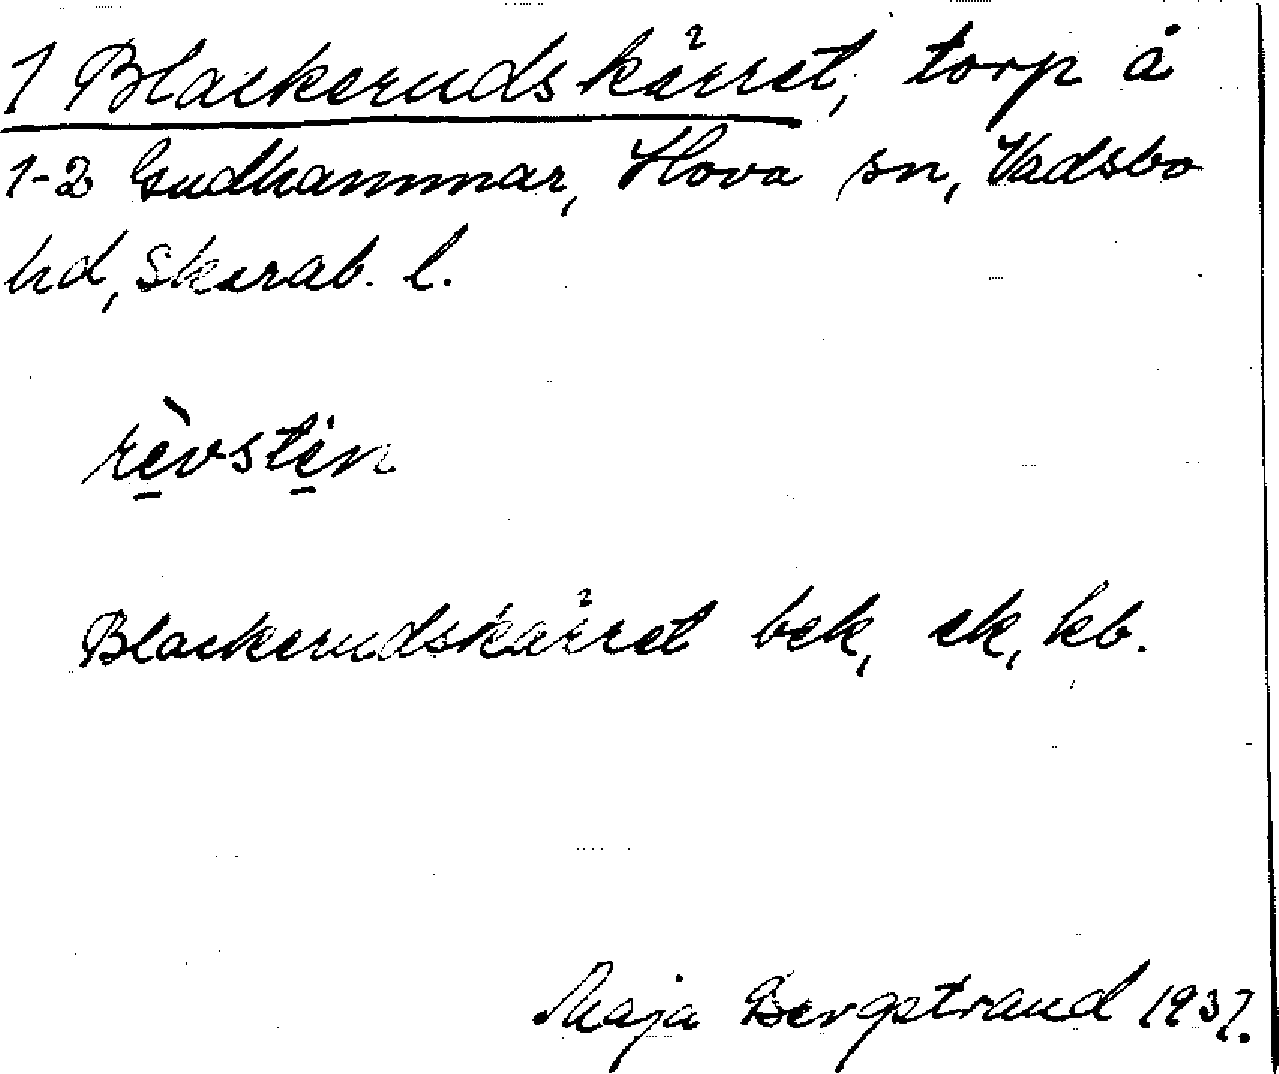 1 Blackerudskärret, torp å
1-2 Gudhammar, Hova sn, Vadsbo
hd, Skarab. l.
rè̱vste̱n
Blackerudskärret bek, ek, kb.
Maja Bergstrand 1937.